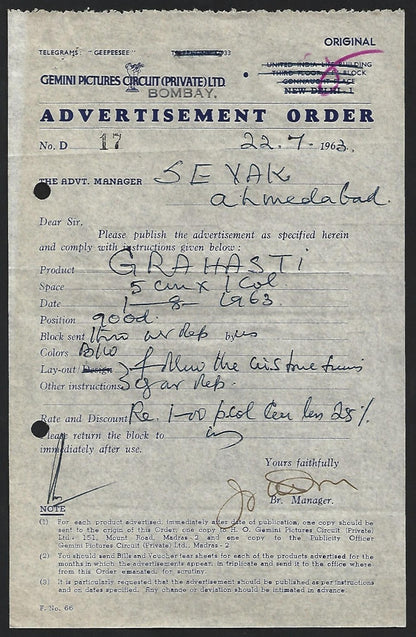 ORIGINAL
TELEGRAMS: "GEEPEESEE"
GEMINI PICTURES CIRCUIT (PRIVATE) LTD.
BOMBAY.
UNITED INDIA LIFE BUILDING
THIRD FLOOR BLOCK
CONNAUGHT PLACE
NEW DELHI-1
ADVERTISEMENT ORDER
No. D 17 22-7-1963.
THE ADVT. MANAGER SEVAK
ahmedabad.
Dear Sir,
Please publish the advertisement as specified herein
and comply with instructions given below :
Product GRAHASTI
Space 5 cm x 1 Col
Date 1-8-1963
Position good.
Block sent by us
Colors B/W
Lay-out/Design follow the instructions
Other instructions of our Rep.
Rate and Discount Re. 1-00 pscol less 25%
Please return the block to us
immediately after use.
Yours faithfully
Br. Manager.
NOTE
(1) For each product advertised, immediately after date of publication, one copy should be
sent to the origin of this Order; one copy to H. O. Gemini Pictures Circuit (Private)
Ltd., 151, Mount Road, Madras-2 and one copy to the Publicity Officer
Gemini Pictures Circuit (Private) Ltd., Madras-2
(2) You should send Bills and Voucher tear sheets for each of the products advertised for the
months in which the advertisements appear, in triplicate and send it to the office where
from this Order emanated, for scrutiny.
(3) It is particularly requested that the advertisement should be published as per instructions
and on dates specified. Any change or deviation should be intimated in advance.
F. No. 66